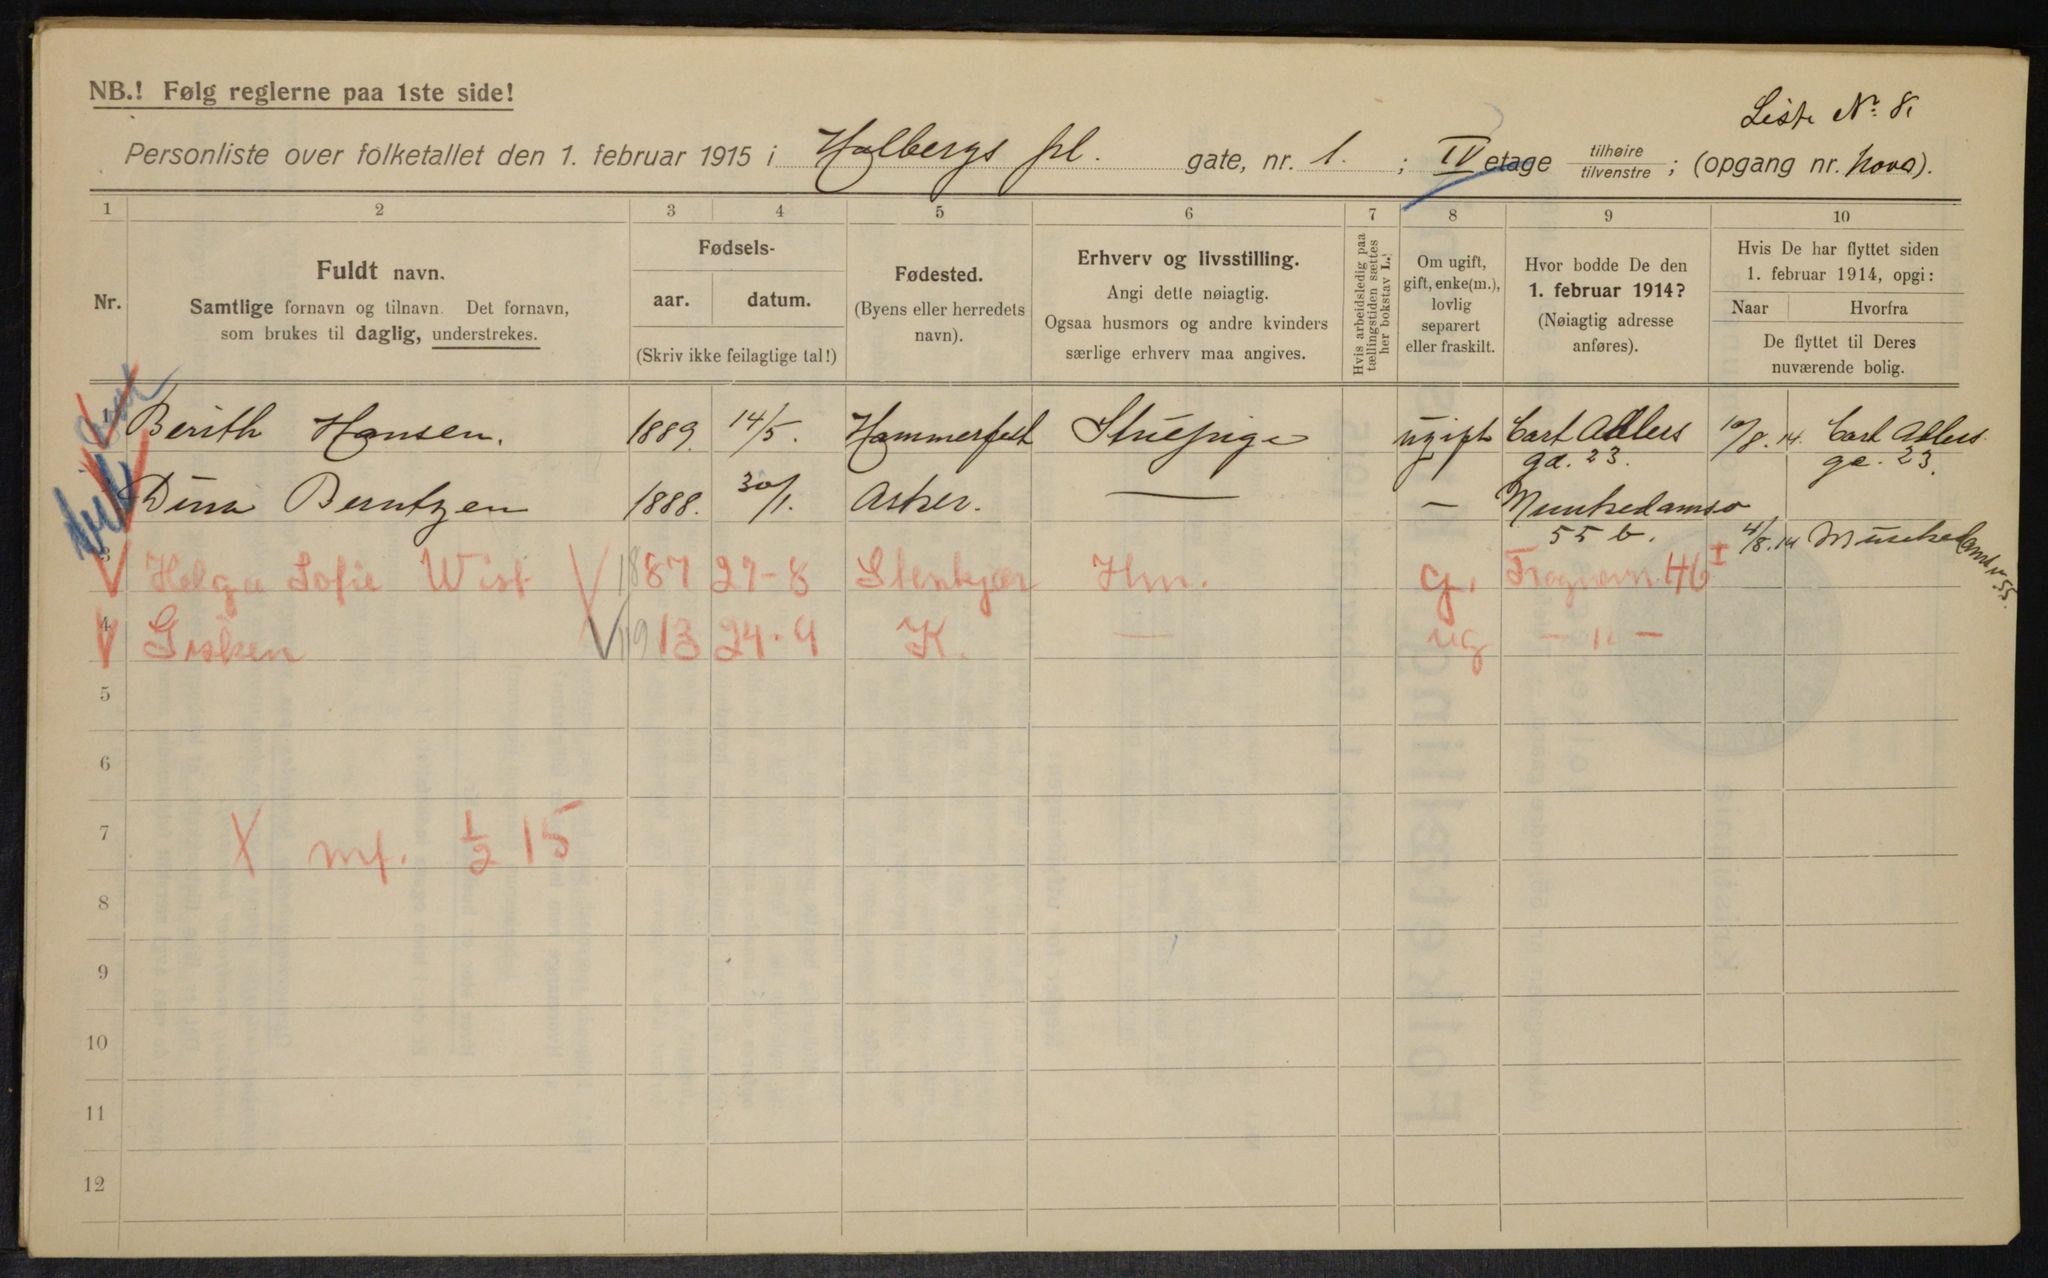 NB.! Følg reglerne paa 1ste side!
Liste No. 8.
Personliste over folketallet den 1. februar 1915 i Holbergs pl. gate, nr. 1. ; IV etage tilhøire / tilvenstre ; (opgang nr. hoved).
1 2 3 4 5 6 7 8 9 10
Nr.
Fuldt navn.
Samtlige fornavn og tilnavn. Det fornavn,
som brukes til daglig, understrekes.
Fødsels-
aar. datum.
(Skriv ikke feilagtige tal!)
Fødested.
(Byens eller herredets
navn).
Erhverv og livsstilling.
Angi dette nøiagtig.
Ogsaa husmors og andre kvinders
særlige erhverv maa angives.
Hvis arbeidsledig paa
tællingstiden sættes
her bokstav L.)
Om ugift,
gift, enke(m.),
lovlig
separert
eller fraskilt.
Hvor bodde De den
1. februar 1914?
(Nøiagtig adresse
anføres).
Hvis De har flyttet siden
1. februar 1914, opgi:
Naar Hvorfra
De flyttet til Deres
nuværende bolig.
1 Berith Hansen. 1889. 14/5. Hammerfest Stuepige ugift Cort Adlers 10/8. 14. Cort Adlers
ga. 23. ga. 23.
Dina Berntzen 1888. 30/1. Asker. — — Munkedamsv
55 b. 4/8. 14 Munkedamsv 55.
3 Helga Sofie Wist 1887 27-8 Stenkjær Hm. g. Frognervn. 46 I
4 Gisken 1913 24-9 K. — ug — " —
5
6
7 X mf. 1/2 15
8
9
10
11
12